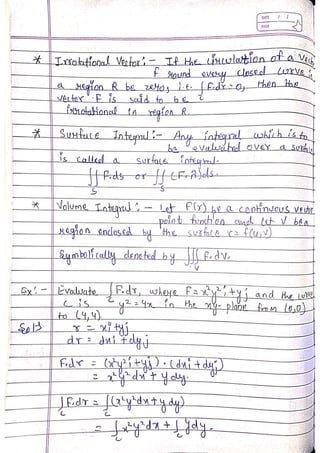 DATE / /
PAGE
* Irrotational Vector :- If the circulation of a vector
F round every closed curve in
a region R be zero, i.e. ∫F.dr = 0, then the
vector F is said to be
irrotational in region R.
* Surface Integral :- Any integral which is to
be evaluated over a surface
is called a surface integral.
∬ F.ds or ∬ (F.n̂)ds.
S S
* Volume Integral :- Let F(r) be a continuous vector
point function and let V be a
region enclosed by the surface r = f(u,v)
Symbolically denoted by ∭ F.dv.
V
Ex:- Evaluate ∫F.dr, where F = x²y²i + yj and the curve
C is y² = 4x in the xy-plane from (0,0)
to (4,4)
Sol:- r = xi + yj
dr = dxi + dyj
F.dr = (x²y²i + yj) . (dxi + dyj)
= x²y²dx + y dy.
∫F.dr = ∫(x²y²dx + y dy)
C C
= ∫x²y²dx + ∫y dy.
C C